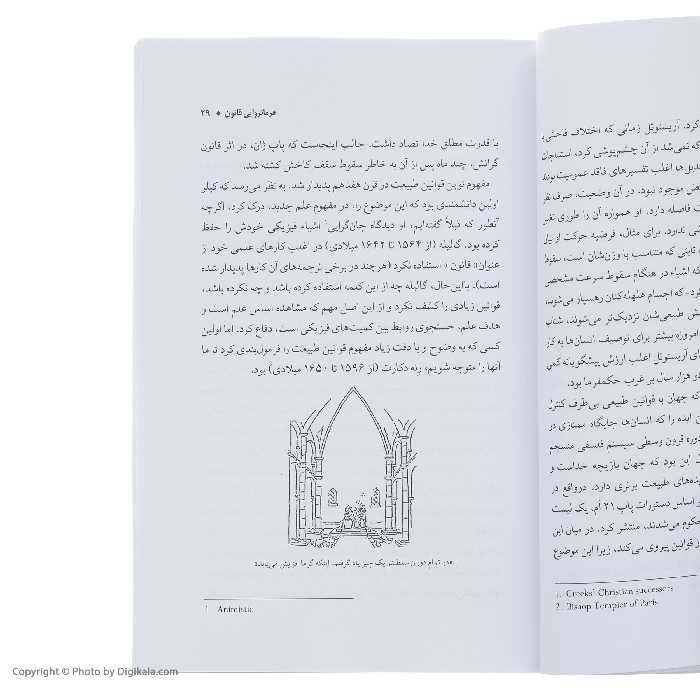 کرد. آریستوتل زمانی که اختلاف فاحشی
که نمی‌شد از آن چشم‌پوشی کرد،
اغلب تفسیرهای فاقد عمومیت بودند
موجود نبود. در آن وضعیت، صرف نظر
فاصله دارد. او همواره آن را طوری تغییر
ندارد. برای مثال، فرضیه حرکت او
ثابتی که متناسب با وزن‌شان است، سقوط
که اشیاء در هنگام سقوط سرعت مشخصی
که اجسام هلهله‌کنان رهسپار می‌شوند
طبیعی‌شان نزدیک‌تر می‌شوند، شتاب
امروزه بیشتر برای توصیف انسان‌ها به کار
آریستوتل اغلب ارزش پیشگویانه کمی
هزار سال بر غرب حکمفرما بود.
که جهان با قوانین طبیعی بی‌طرف کنترل
این ایده را که انسان‌ها جایگاه ممتازی در
دوره قرون وسطی سیستم فلسفی منسجم
این بود که جهان بازیچه خداست و
طبیعت برتری دارد. درواقع در
اساس دستورات پاپ ۲۱ ام، یک لیست
محکوم می‌شدند، منتشر کرد. در میان این
از قوانین پیروی می‌کند، زیرا این موضوع
1. Greeks' Christian successors
2. Bishop Tempier of Paris
فرمانروایی قانون ◆ ۲۹
با قدرت مطلق خدا تضاد داشت. جالب اینجاست که پاپ ژان، در اثر قانون
گرانش، چند ماه پس از آن به خاطر سقوط سقف کاخش کشته شد.
مفهوم نوین قوانین طبیعت در قرن هفدهم پدیدار شد. به نظر می‌رسد که کپلر
اولین دانشمندی بود که این موضوع را، در مفهوم علم جدید، درک کرد، اگرچه
آنطور که قبلاً گفته‌ایم، او دیدگاه جان‌گرایی¹ اشیاء فیزیکی خودش را حفظ
کرده بود. گالیله (از ۱۵۶۴ تا ۱۶۴۲ میلادی) در اغلب کارهای علمی خود از
عنوان» قانون « استفاده نکرد (هر چند در برخی ترجمه‌های آن کارها پدیدار شده
است). بااین‌حال، گالیله چه از این کلمه استفاده کرده باشد و چه نکرده باشد،
قوانین زیادی را کشف نکرد و از این اصل مهم که مشاهده اساس علم است و
هدف علم، جستجوی روابط بین کمیت‌های فیزیکی است، دفاع کرد. اما اولین
کسی که به وضوح و با دقت زیاد مفهوم قوانین طبیعت را فرمول‌بندی کرد تا ما
آنها را متوجه شویم، رنه دکارت (از ۱۵۹۶ تا ۱۶۵۰ میلادی) بود.
1. Animista
Copyright © Photo by Digikala.com